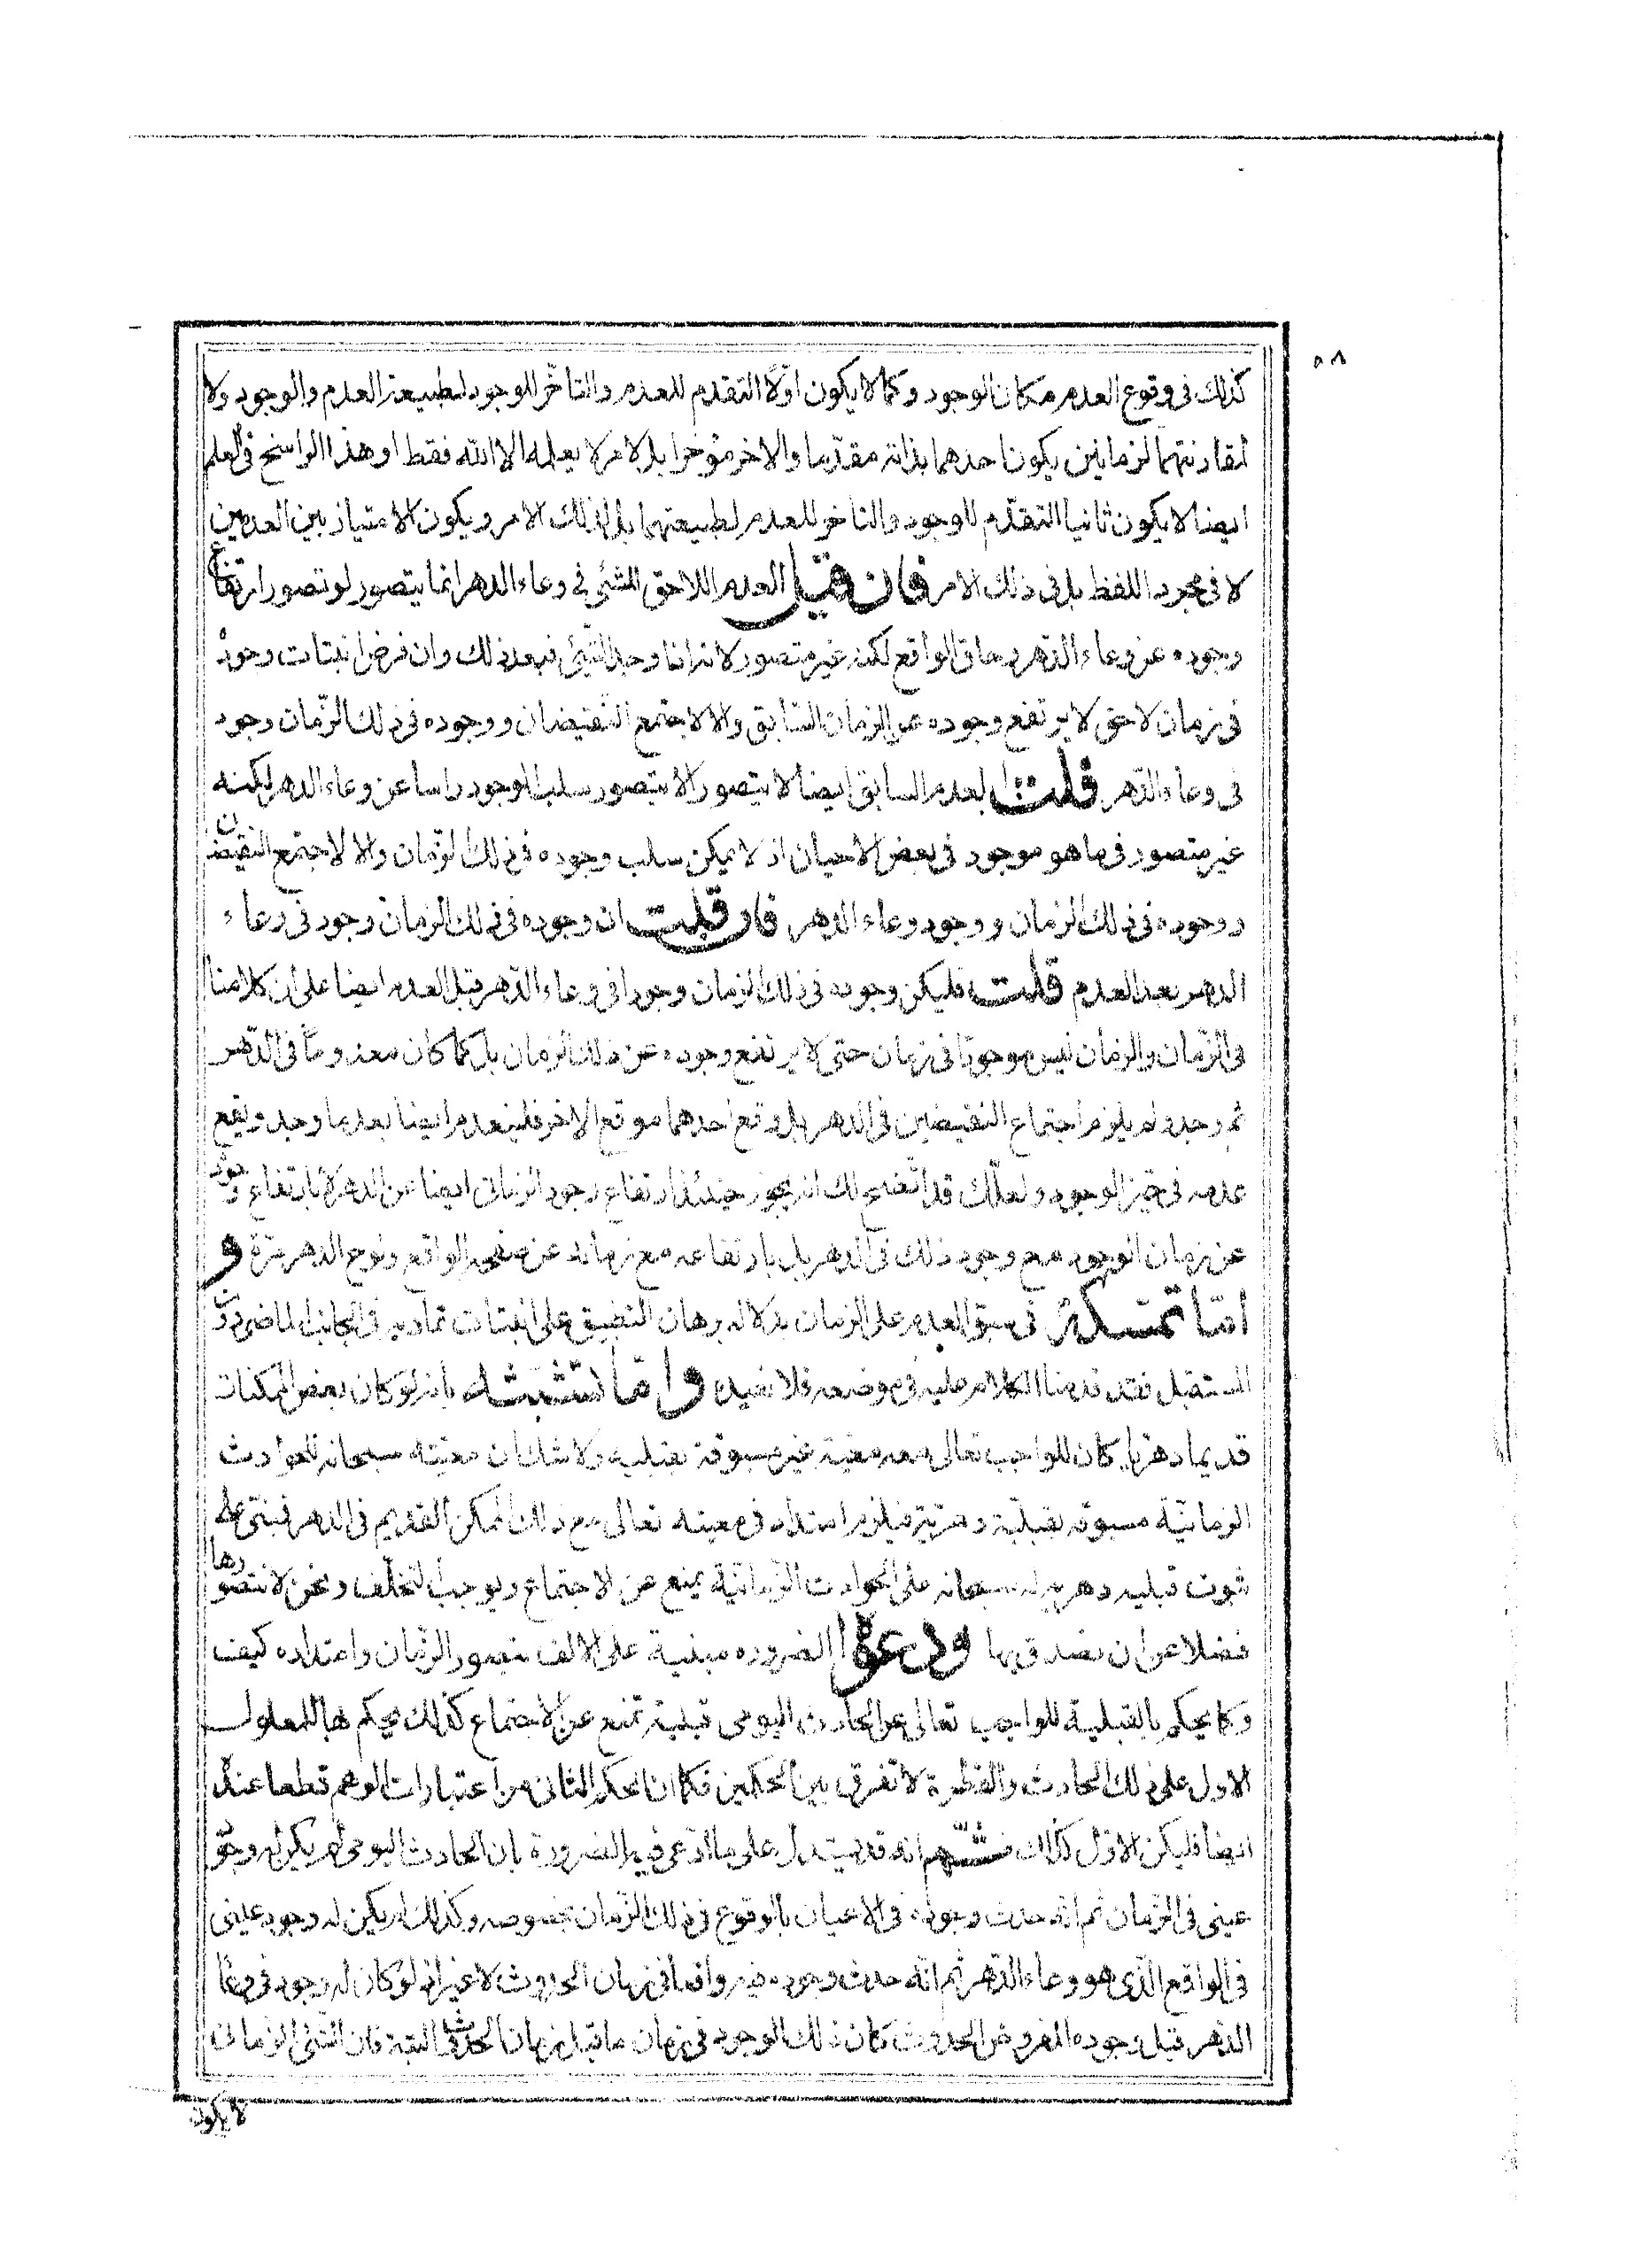 ٥٨
كذلك فى وقوع العدم مكان الوجود وكما لا يكون اوّلا التقدم للعدم والتاخّر للوجود لطبيعة العدم والوجود ولا
لمقارنتهما لزمانين يكون احدهما بذاته مقدّما والاخر مؤخرا بل لامر لا يعلمه الا الله فقط او هذا الراسخ فى العلم
ايضا لا يكون ثانيا التقدّم للوجود والتاخر للعدم لطبيعتهما بل لذلك الامر ويكون الامتياز بين العدمين
لا فى مجرد اللفظ بل فى ذلك الامر فان قيل العدم اللاحق للشئ في وعاء الدهر انما يتصور لو تصور ارتفاع
وجوده عن وعاء الدّهر وحاق الواقع لكنه غير متصور لانه اذا وجد الشئ فبعد ذلك وان فرض انبتات وجوده
فى زمان لاحق لا يرتفع وجوده عن الزمان السّابق والا لاجتمع النّقيضان ووجوده فى ذلك الزّمان وجود
فى وعاء الدّهر قلت العدم السابق ايضا لا يتصور الا بتصور سلب الوجود راسا عن وعاء الدهر لكنه
غير متصور فى ما هو موجود فى بعض الاحيان اذ لا يمكن سلب وجوده فى ذلك الزّمان والا لاجتمع النقيضان
ووجوده فى ذلك الزمان ووجود وعاء الدهر فان قلت ان وجوده فى ذلك الزمان وجود فى وعاء
الدهر بعد العدم قلت فليكن وجوده فى ذلك الزمان وجودا فى وعاء الدّهر قبل العدم ايضا على ان كلامنا
فى الزّمان والزمان ليس موجودًا فى زمان حتى لا يرتفع وجوده عن ذلك الزمان بل كما كان معدومًا فى الدّهر
ثم وجد ولم يلزم اجتماع النقيضين فى الدهر بل وقع احدهما موقع الاخر فلينعدم ايضا بعدما وجد ويقع
عدمه فى حيّز الوجود ولعلّك قد اتّضح لك انه يجوز حينئذ ارتفاع وجود الزمانى ايضا عن الدهر لا بارتفاع وجوده
عن زمان الوجود مع وجود ذلك فى الدهر بل بارتفاعه مع زمانه عن صفحة الواقع ولوح الدهر مرّة و
امّا تمسّكه فى سبق العدم على الزمان بدلالة برهان التطبيق على انبتات تماديه فى الجانب الماضى دون
المستقبل فقد قدمنا الكلام عليه فى موضعه فلا نعيده وامّا تشبثه بانه لو كان بعض الممكنات
قديما دهريا كان للواجب تعالى معه معيّة غير مسبوقة بقبلية ولا شك ان معيّته سبحانه للحوادث
الزمانيّة مسبوقة بقبليّة دهريّة فيلزم امتداد فى معيته تعالى مع ذلك الممكن القديم فى الدهر فمبنى على
ثبوت قبلية دهرية له سبحانه على الحوادث الزّمانيّة يمنع عن الاجتماع ويوجب التخلّف ونحن لا نتصورها
فضلا عن ان نصدق بها ودعوى الضرورة مبنية على الالف بتصور الزّمان وامتداده كيف
وكما يحكم بالقبلية للواجب تعالى عن الحادث اليومى قبلية تمنع عن الاجتماع كذلك يحكم بها للمعلول
الاول على ذلك الحادث والفطرة لا تفرق بين الحكمين فكما ان الحكم الثانى من اعتبارات الوهم قطعا عنده
ايضا فليكن الاوّل كذلك ثمّ انه قد يستدل على ما ادّعى فيه الضرورة بان الحادث اليومى لم يكن له وجود
عينى فى الزّمان ثم انّه حدث وجوده فى الاعيان بالوقوع فى ذلك الزّمان بخصوصه وكذلك لم يكن له وجود عينى
فى الواقع الّذى هو وعاء الدّهر ثم انّه حدث وجوده فيه واقعا فى زمان الحدوث لا غير اذ لو كان له وجود فى وعاء
الدّهر قبل وجوده المفروض الحدوث كان ذلك الوجود فى زمان ما قبل زمان الحدوث البتة فان الشئ الزمانى
لا يكون